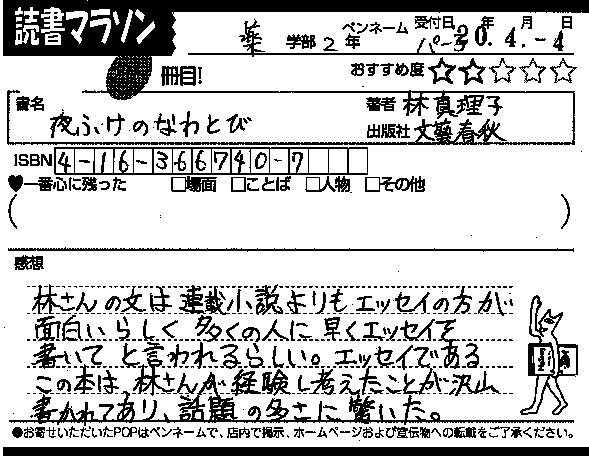 読書マラソン
冊目!
薬 学部 2 年
ペンネーム パーラ
受付日 20年 4月 -4日
おすすめ度 ☆☆☆☆☆
書名 夜ふけのなわとび
著者 林真理子
出版社 文藝春秋
ISBN 4-16-366740-7
♥一番心に残った □場面 □ことば □人物 □その他
( )
感想
林さんの文は連載小説よりもエッセイの方が
面白いらしく多くの人に早くエッセイを
書いてと言われるらしい。エッセイである
この本は、林さんが経験し考えたことが沢山
書かれてあり、話題の多さに驚いた。
●お寄せいただいたPOPはペンネームで、店内で掲示、ホームページおよび宣伝物への転載をご了承ください。